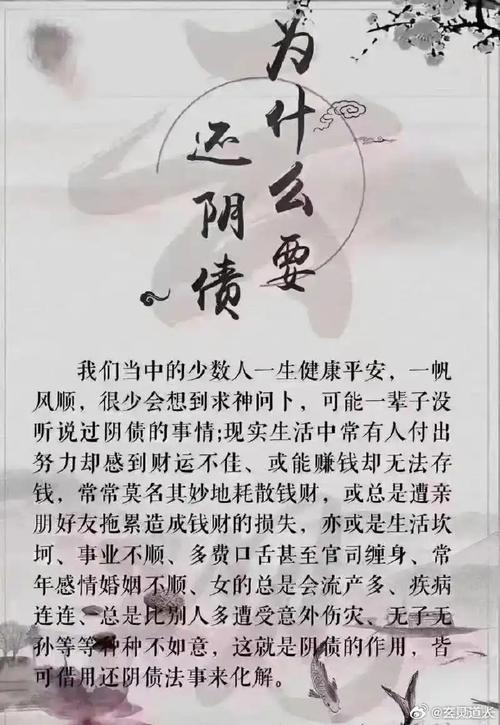 为什么要
还阴债
我们当中的少数人一生健康平安，一帆
风顺，很少会想到求神问卜，可能一辈子没
听说过阴债的事情;现实生活中常有人付出
努力却感到财运不佳、或能赚钱却无法存
钱，常常莫名其妙地耗散钱财，或总是遭亲
朋好友拖累造成钱财的损失，亦或是生活坎
坷、事业不顺、多费口舌甚至官司缠身、常
年感情婚姻不顺、女的总是会流产多、疾病
连连、总是比别人多遭受意外伤灾、无子无
孙等等种种不如意，这就是阴债的作用，皆
可借用还阴债法事来化解。
@玄灵道长